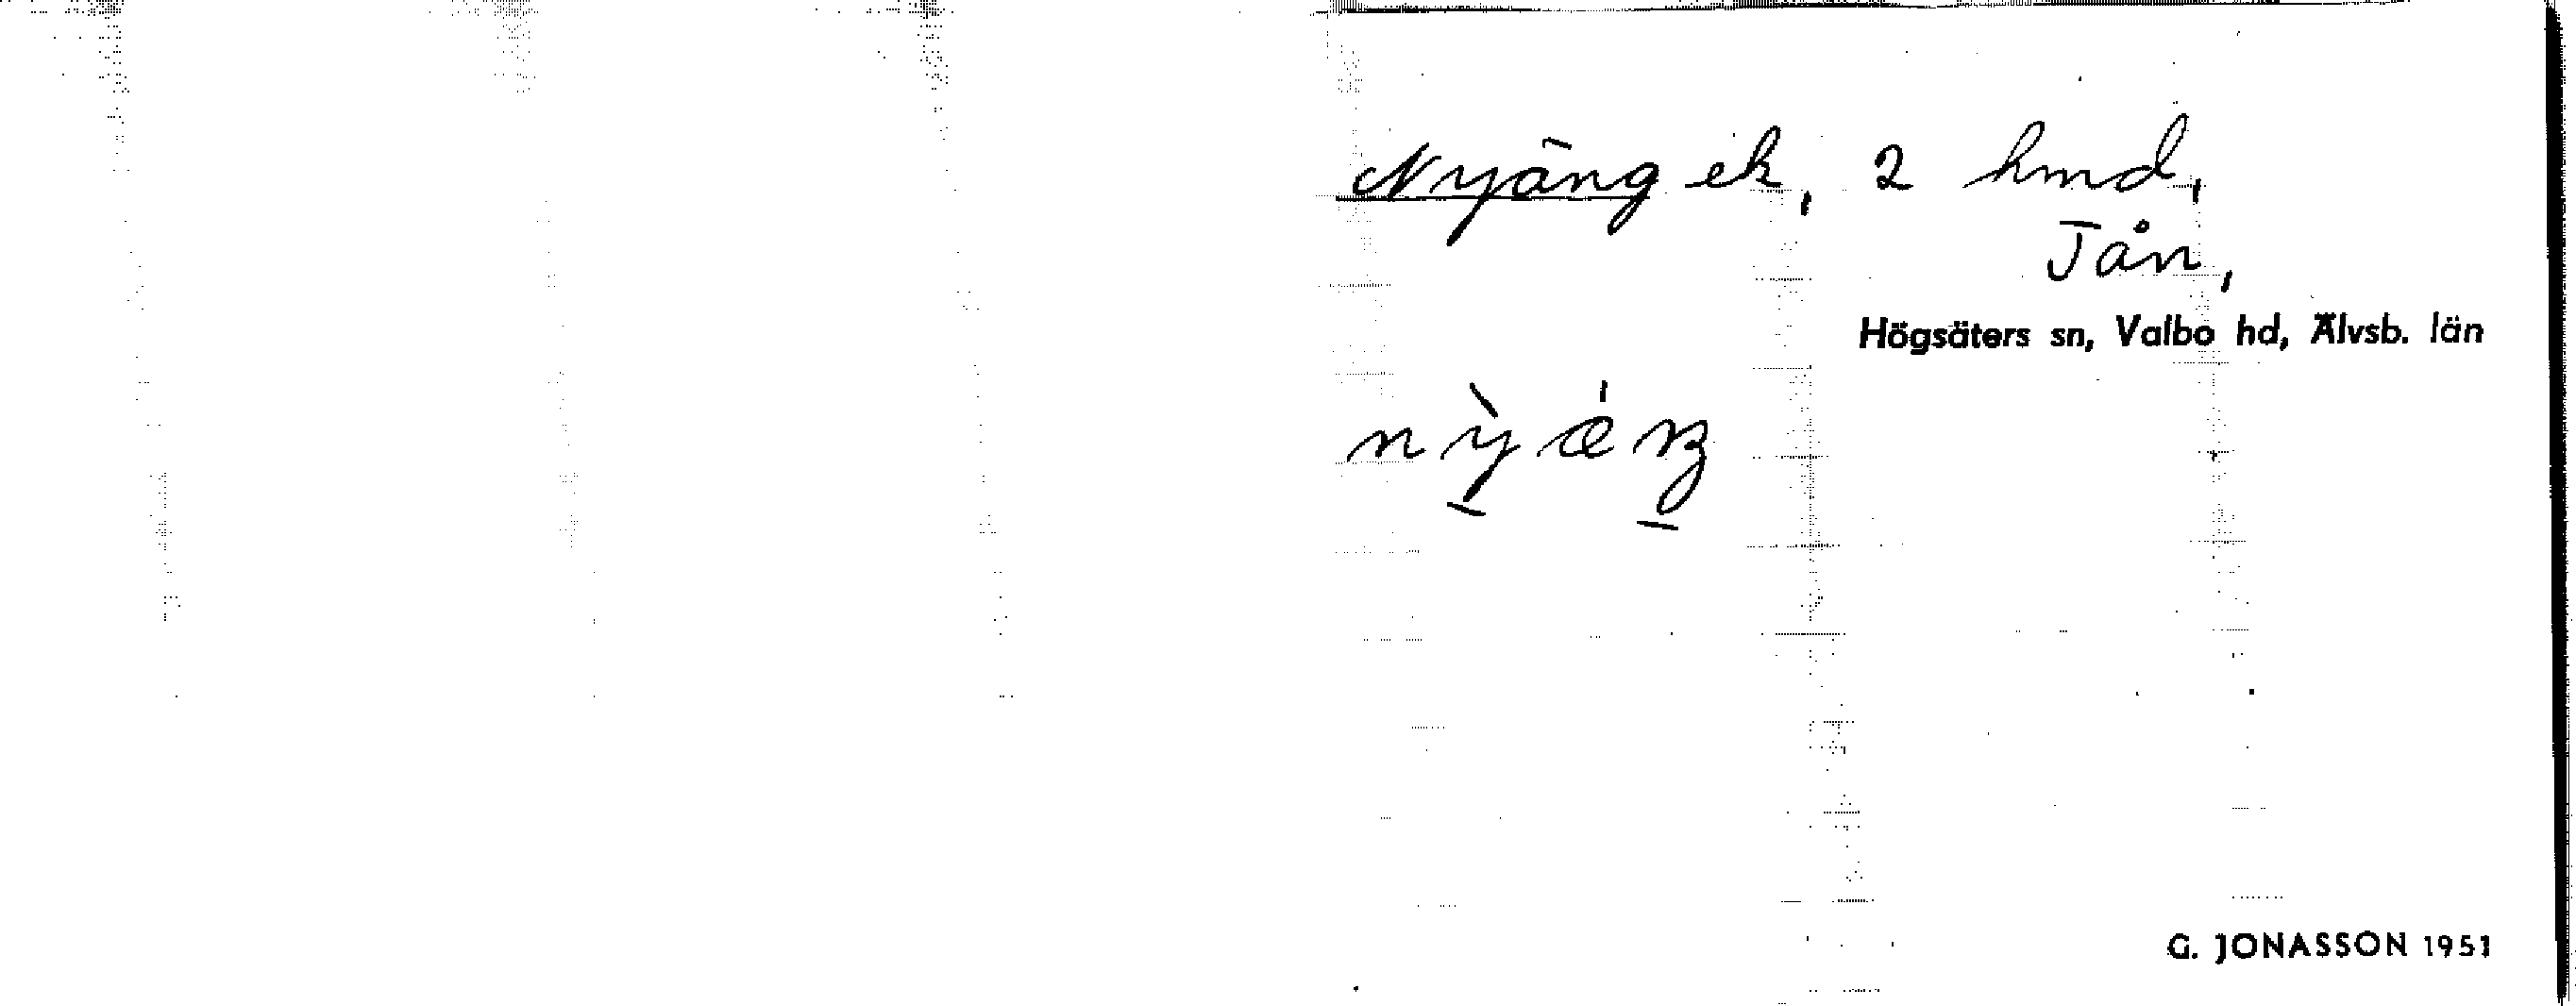 Nyäng ek, 2 hmd,
Jån,
Högsäters sn, Valbo hd, Älvsb. län
G. JONASSON 1951